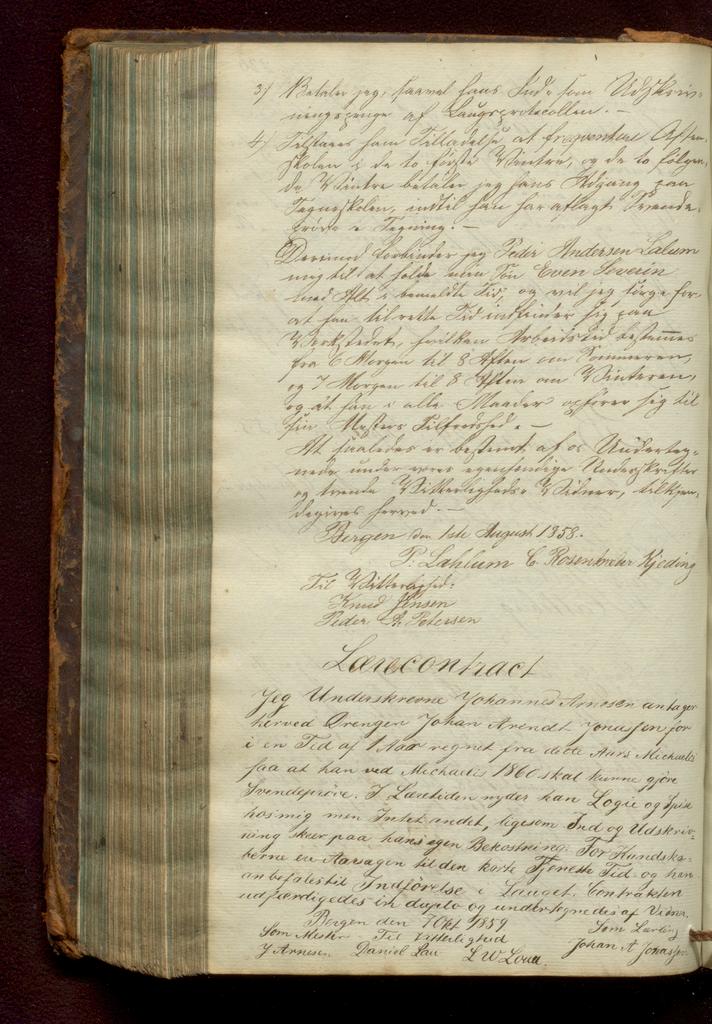 3) Betaler jeg, saavel hans Ind- som Udskriv-
ningspenge af Laugsprotocollen. -
4) Tilstaaes ham Tilladelse at freqventere Aften-
skolen i de to første Vintre, og de to følgen-
de Vintre betaler jeg hans Adgang paa
Tegneskolen, indtil han har aflagt Svende-
prøve i Tegning. -
Derimod forbinder jeg Peder Andersen Lalum
mig til at holde min Søn Even Severin
med Alt i bemeldte Tid, og vil jeg sørge for
at han til rette Tid indfinder sig paa
Værkstedet, hvilken Arbeidstid bestemmes
fra 6 Morgen til 8 Aften om Sommeren,
og 7 Morgen til 8 Aften om Vinteren,
og at han i alle Maader opfører sig til
sin Mesters Tilfredshed. -
At saaledes er bestemt af os Underteg-
nede under vores egenhændige Underskrifter
og tvende Vitterligheds Vidner, tilkjen-
degives herved. -
Bergen den 1ste August 1858.
P. Lahlum C. Kjeding
Til Vitterlighed:
Knud Jensen
Peder A. Petersen
Lærecontract
Jeg Underskrevne Johannes Arnesen antager
herved Drengen Johan Arendt Jonassen for
i en Tid af 1 Aar regnet fra dette Aars Michaeli
saa at han ved Michaelis 1860 skal kunne gjøre
Svendeprøve. I Læretiden nyder han Logie og Spise
hos mig men Intet andet, ligesom Ind og Udskriv-
ning skeer paa hans egen Bekostning. For Kundska-
berne er Aarsagen til den korte Tjeneste Tid og han
anbefales til Indførelse i Lauget. Contrakten
udfærdigedes in duplo og undertegnedes af Vidner.
Bergen den 7 Okt 1859
Som Mester Til Vitterlighed Som Lærling
J Arnesen Daniel L W Johan A Jonassen